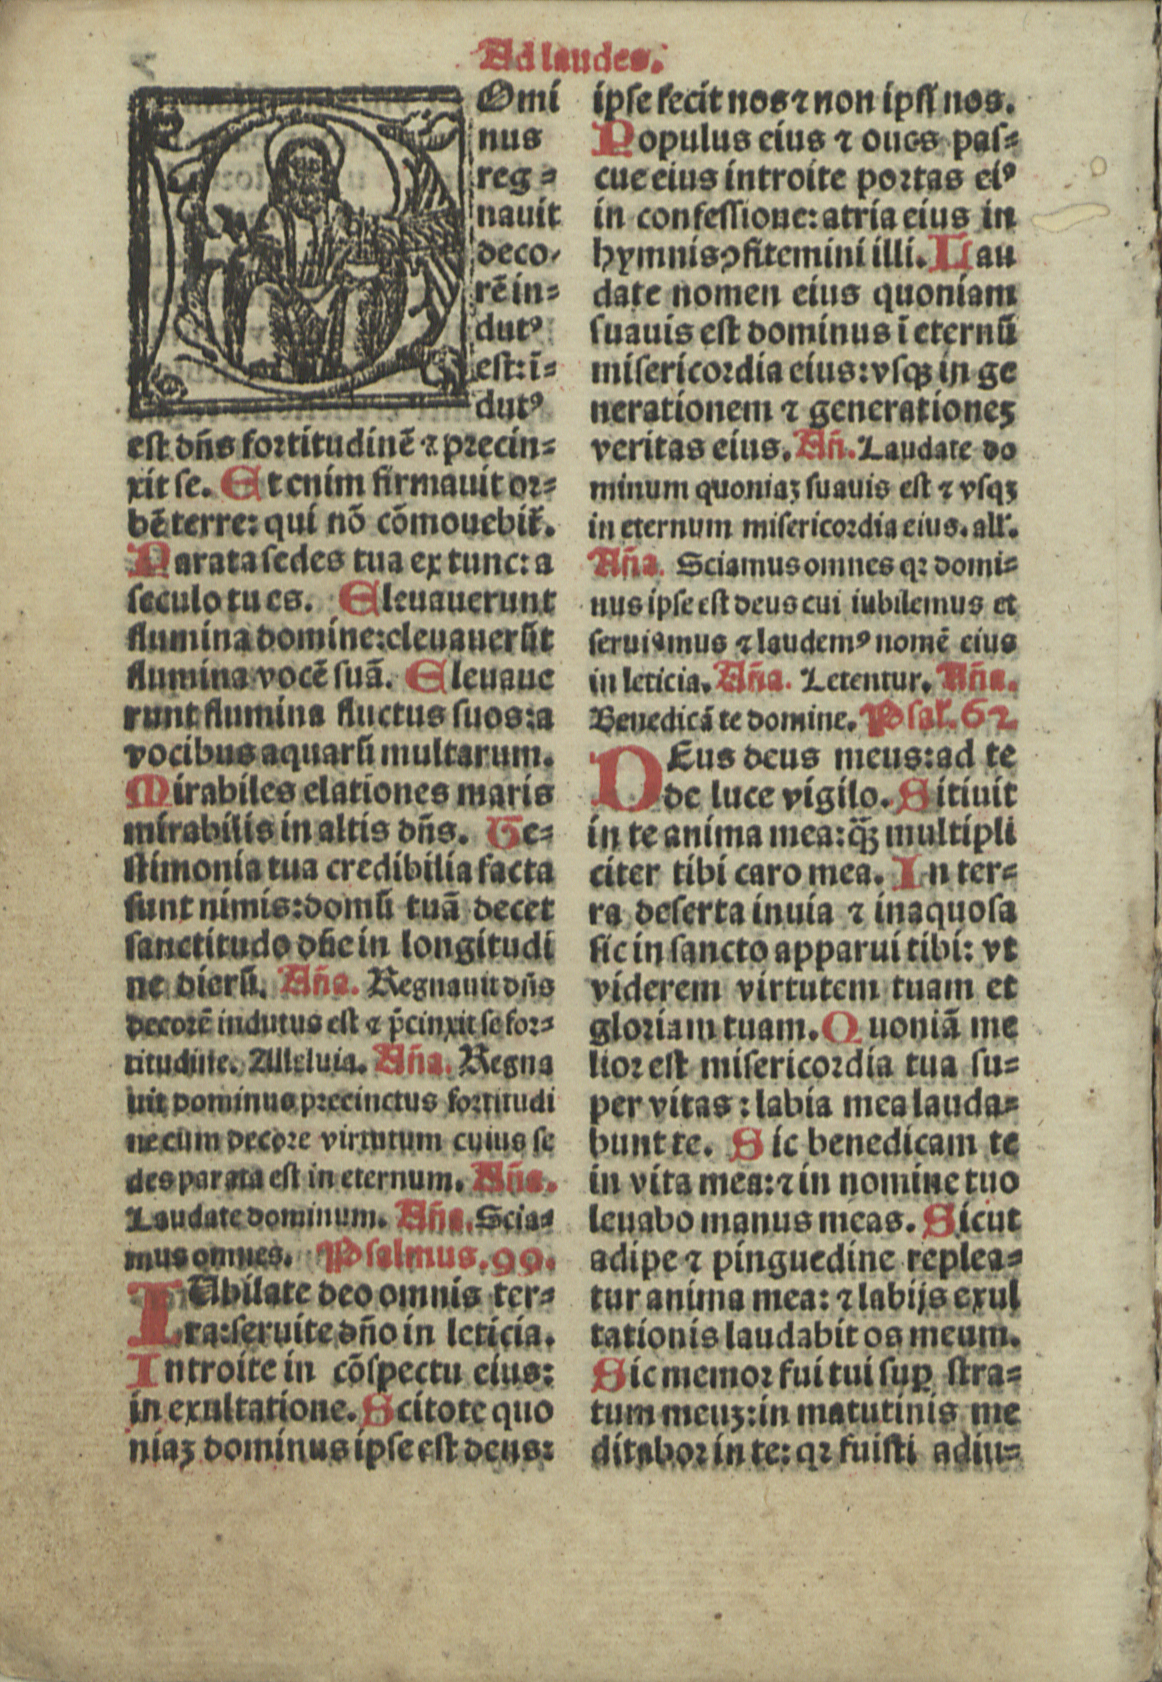 Ad laudes.
Omi
nus
reg-
nauit
deco-
rē in-
dutꝰ
est: ī-
dutꝰ
est dn̄s fortitudinē ⁊ precin-
xit se. Et enim firmauit or-
bē terre: qui nō cōmouebit̄.
Parata sedes tua ex tunc: a
seculo tu es. Eleuauerunt
flumina domine: eleuauerūt
flumina vocē suā. Eleuaue
runt flumina fluctus suos: a
vocibus aquarū multarum.
Mirabiles elationes maris
mirabilis in altis dn̄s. Te-
stimonia tua credibilia facta
sunt nimis: domū tuā decet
sanctitudo dn̄e in longitudi
ne dierū. An̄a. Regnauit dn̄s
decorē indutus est ⁊ p̄cinxit se for-
titudine. Alleluia. An̄a. Regna
uit dominus precinctus fortitudi
ne cum decore virtutum cuius se
des parata est in eternum. An̄a.
Laudate dominum. An̄a. Scia-
mus omnes. Psalmus. 99.
IUbilate deo omnis ter-
ra: seruite dn̄o in leticia.
Introite in cōspectu eius:
in exultatione. Scitote quo
niaꝫ dominus ipse est deus:
ipse fecit nos ⁊ non ipsi nos.
Populus eius ⁊ oues pas-
cue eius introite portas eiꝰ
in confessione: atria eius in
hymnis ꝯfitemini illi. Lau
date nomen eius quoniam
suauis est dominus ī eternū
misericordia eius: vsqꝫ in ge
nerationem ⁊ generationeꝫ
veritas eius. An̄. Laudate do
minum quoniaꝫ suauis est ⁊ vsqꝫ
in eternum misericordia eius. all̄.
An̄a. Sciamus omnes qꝛ domi-
nus ipse est deus cui iubilemus et
seruiamus ⁊ laudemꝰ nomē eius
in leticia. An̄a. Letentur. An̄a.
Benedicā te domine. Psal̄. 62
DEus deus meus: ad te
de luce vigilo. Sitiuit
in te anima mea: q̄ꝫ multipli
citer tibi caro mea. In ter-
ra deserta inuia ⁊ inaquosa
sic in sancto apparui tibi: vt
viderem virtutem tuam et
gloriam tuam. Quoniā me
lior est misericordia tua su-
per vitas: labia mea lauda-
bunt te. Sic benedicam te
in vita mea: ⁊ in nomine tuo
leuabo manus meas. Sicut
adipe ⁊ pinguedine replea-
tur anima mea: ⁊ labijs exul
tationis laudabit os meum.
Sic memor fui tui suꝑ stra-
tum meuꝫ: in matutinis me
ditabor in te: qꝛ fuisti adiu-